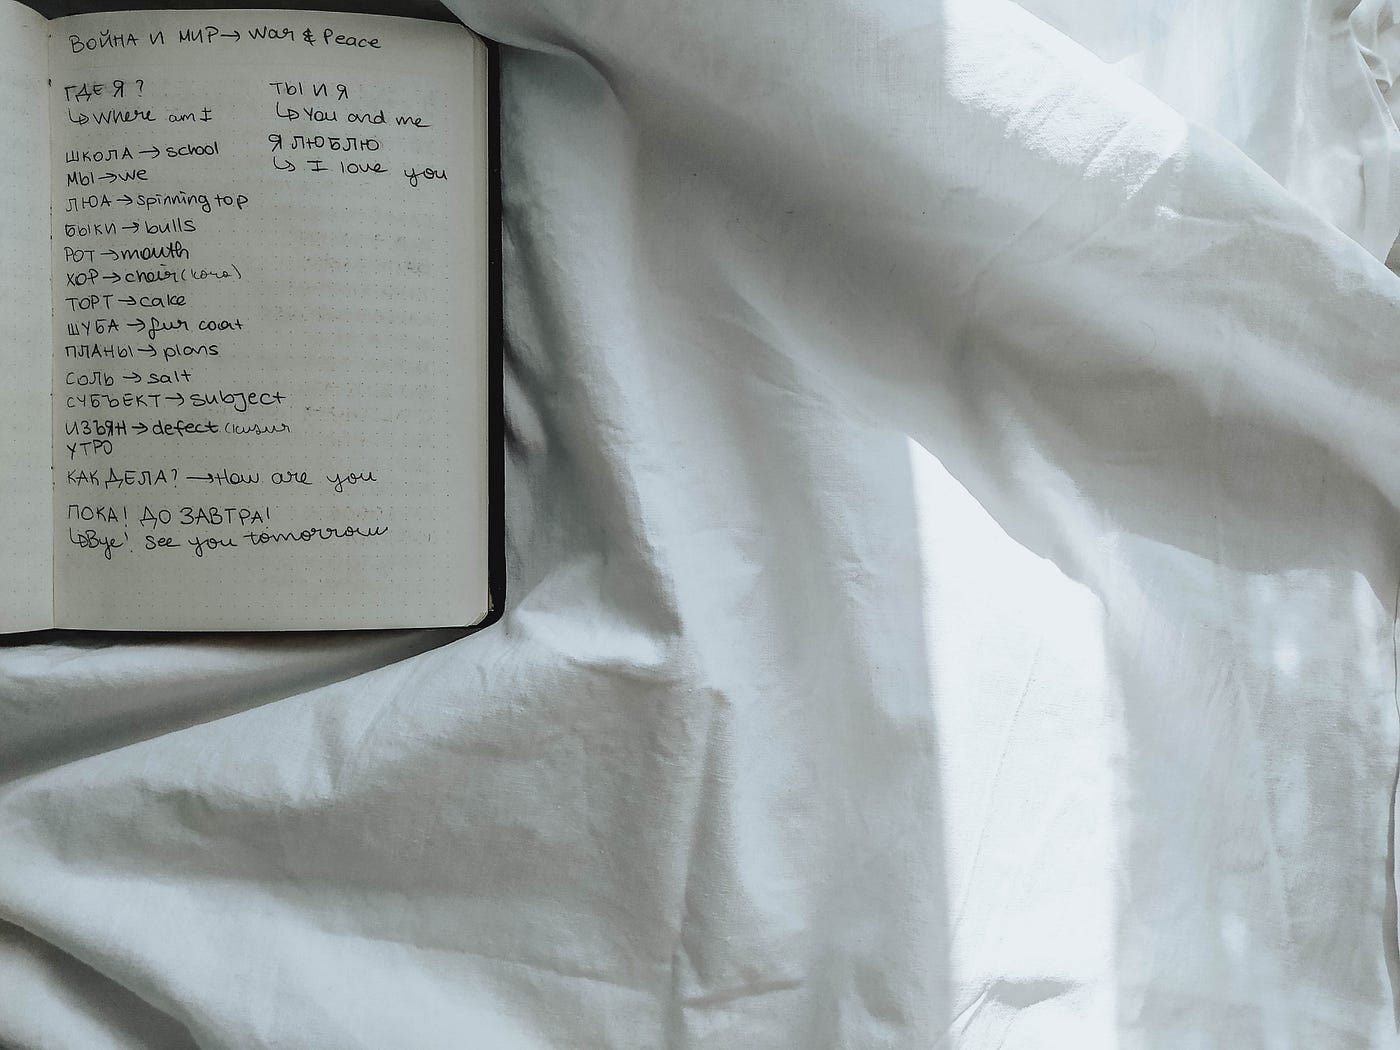 ВОЙНА И МИР→ War & Peace
ГДЕ Я?
↳ Where am I
ШКОЛА → school
МЫ → we
ЛЮА → spinning top
БЫКИ → bulls
РОТ → mouth
ХОР → choir
ТОРТ → cake
ШУБА → fur coat
ПЛАНЫ → plans
СОЛЬ → salt
СУБЪЕКТ → subject
ИЗЪЯН → defect
УТРО
КАК ДЕЛА? → How are you
ПОКА! ДО ЗАВТРА!
↳ Bye! See you tomorrow
ТЫ И Я
↳ You and me
Я ЛЮБЛЮ
↳ I love you